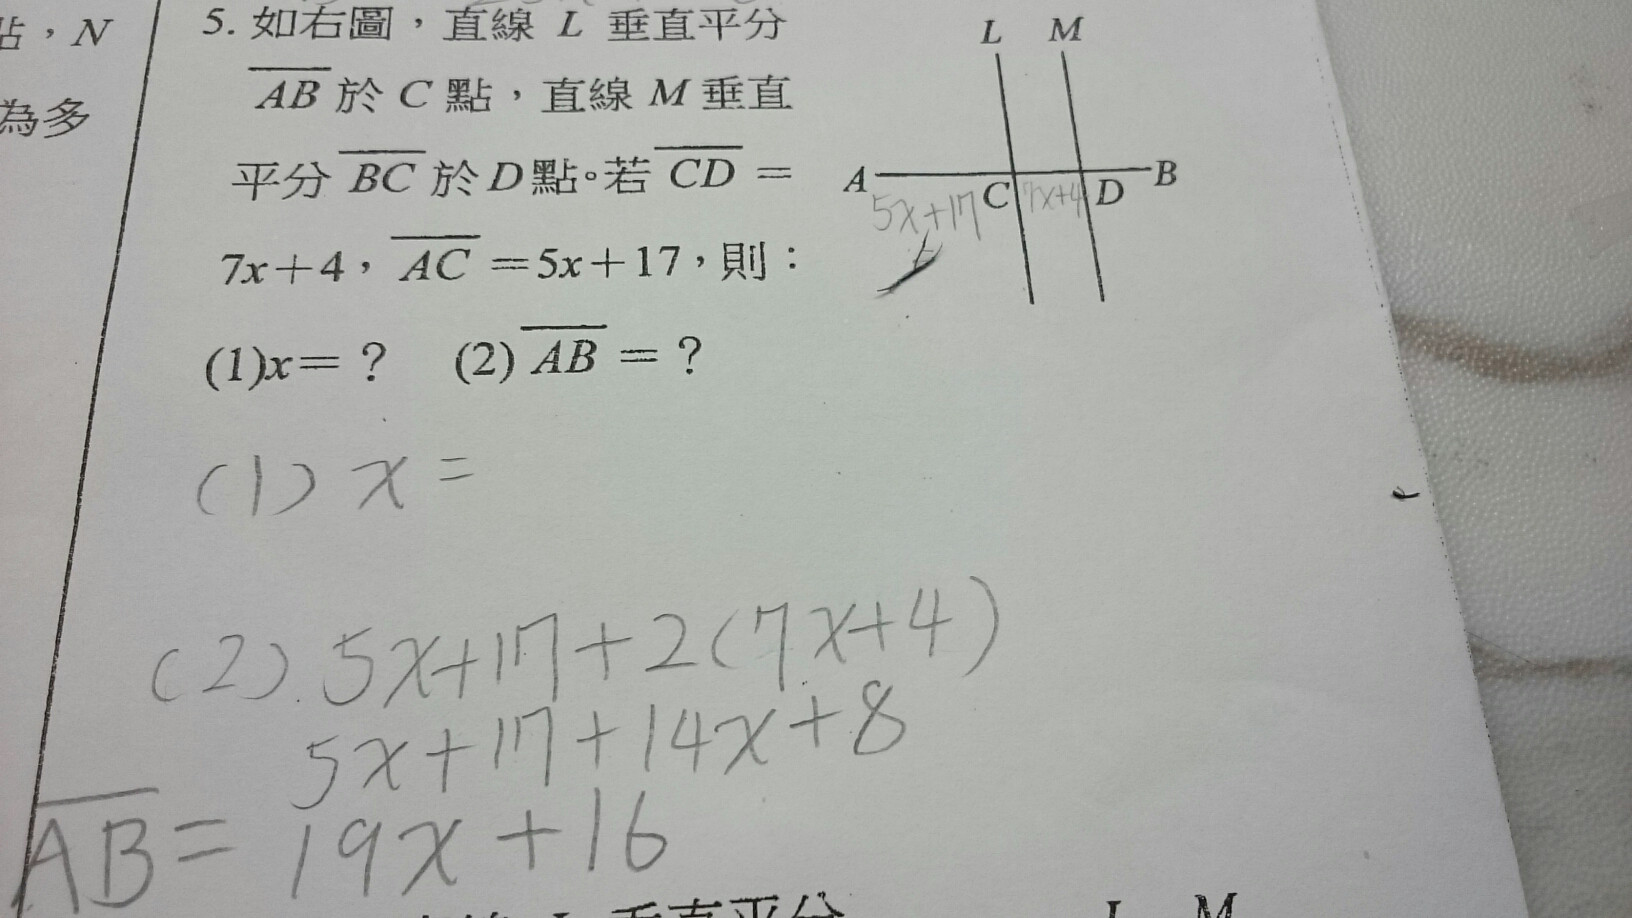 占，N
為多
5. 如右圖，直線 L 垂直平分
AB 於 C 點，直線 M 垂直
平分 BC 於 D 點。若 CD =
7x+4，AC =5x+17，則：
(1)x= ？ (2) AB = ？
L M
A C D B
5x+17 7x+4
(1) x =
(2). 5x+17+2(7x+4)
5x+17+14x+8
AB = 19x+16
L 垂直平分
L M